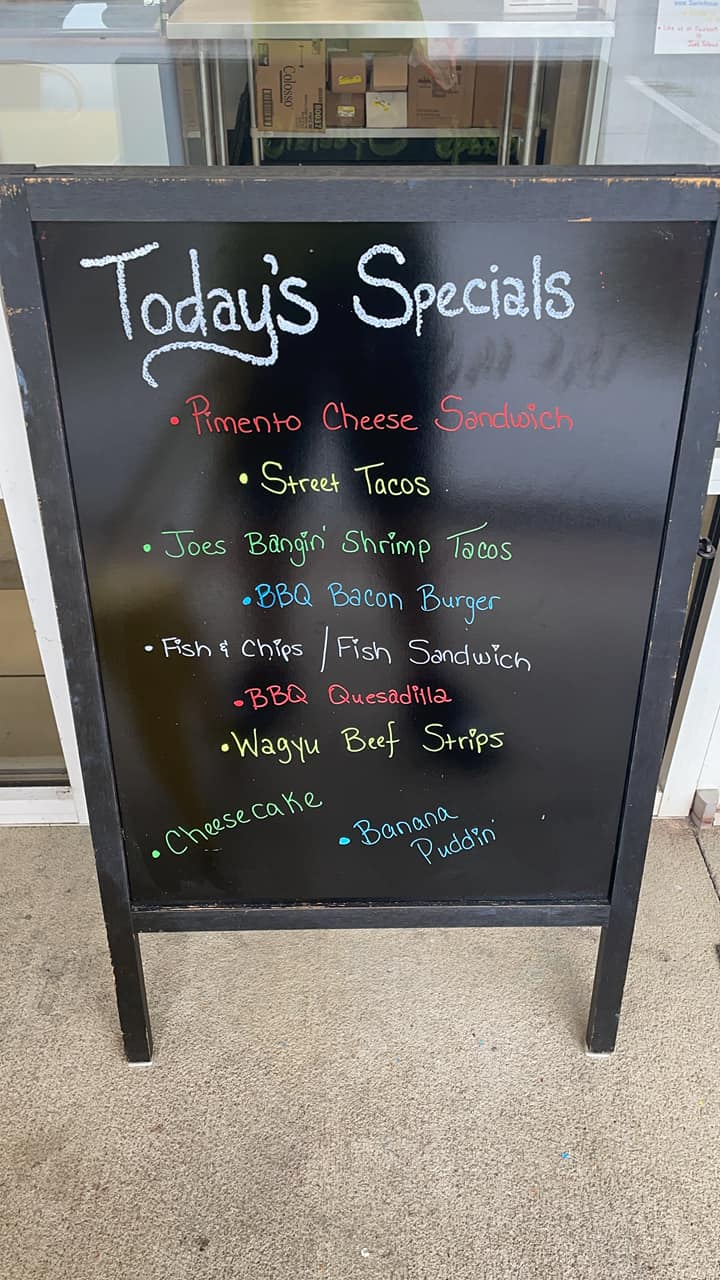 Colosso
Today's Specials
• Pimento Cheese Sandwich
• Street Tacos
• Joes Bangin' Shrimp Tacos
• BBQ Bacon Burger
• Fish & Chips / Fish Sandwich
• BBQ Quesadilla
• Wagyu Beef Strips
• Cheesecake
• Banana
Puddin'